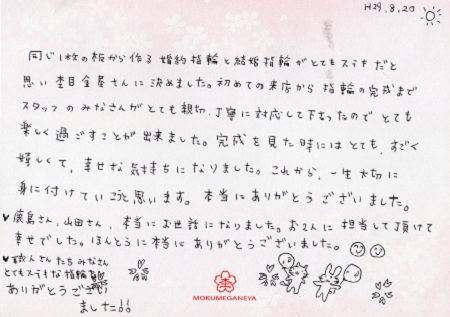 H29.8.20
同じ1枚の板から作る婚約指輪と結婚指輪がとてもステキだと
思い杢目金屋さんに決めました。初めての来店から指輪の完成まで
スタッフのみなさんがとても親切、丁寧に対応して下さったのでとても
楽しく過ごすことが出来ました。完成を見た時にはとても、すごく
嬉しくて、幸せな気持ちになりました。これから、一生大切に
身に付けていこうと思います。本当にありがとうございました。
♥廣島さん、山田さん、本当にお世話になりました。お2人に担当して頂けて
幸せでした。ほんとうに本当にありがとうございました。
♥職人さんたちみなさん
とてもステキな指輪を
ありがとうござい
ました!!
MOKUMEGANEYA